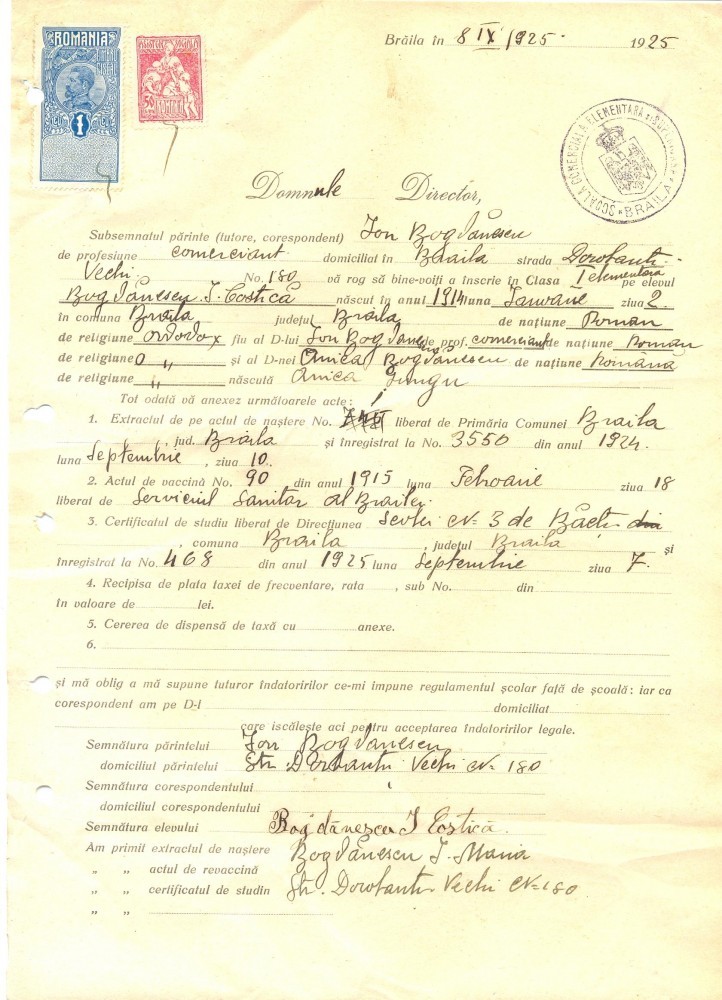 ROMANIA
1
ASISTENȚA SOCIALĂ
50
ROMÂNIA
Brăila în 8 IX 1925. 1925
ȘCOALA COMERCIALĂ ELEMENTARĂ BRAILA
Domnule Director,
Subsemnatul părinte (tutore, corespondent) Ion Bogdănescu
de profesiune comerciant domiciliat în Brăila strada Dorobanti-
Vechi. No. 180 vă rog să bine-voiți a înscrie în Clasa I elementară pe elevul
Bogdănescu I. Costică născut în anul 1914 luna Ianuarie ziua 2.
în comuna Brăila județul Brăila de națiune Roman
de religiune ordodox fiu al D-lui Ion Bogdănescu de prof. comerciant de națiune Roman
de religiune o " și al D-nei Anica Bogdănescu de națiune Română
de religiune " născută Anica
Tot odată vă anexez următoarele acte:
1. Extractul de pe actul de naștere No. liberat de Primăria Comunei Braila
, jud. Braila și înregistrat la No. 3550 din anul 1924.
luna Septembrie, ziua 10.
2. Actul de vaccină No. 90 din anul 1915 luna Febroarie ziua 18
liberat de Serviciul Sanitar al Brailei
3. Certificatul de studiu liberat de Direcțiunea Scolei No 3 de Băeti
, comuna Braila, județul Braila și
înregistrat la No. 468 din anul 1925 luna Septembrie ziua 7.
4. Recipisa de plata taxei de frecventare, rata , sub No. din
în valoare de lei.
5. Cererea de dispensă de taxă cu anexe.
6.
și mă oblig a mă supune tuturor îndatoririlor ce-mi impune regulamentul școlar față de școală: iar ca
corespondent am pe D-l domiciliat
care iscălește aci pentru acceptarea îndatoririlor legale.
Semnătura părintelui Ion Bogdanescu
domiciliul părintelui Str. Dorobantii Vechi No 180
Semnătura corespondentului
domiciliul corespondentului
Semnătura elevului Bogdănescu I Costică.
Am primit extractul de naștere Bogdănescu I. Maria
" " actul de revaccină
" " certificatul de studin Str. Dorobantii Vechi No 180
" "